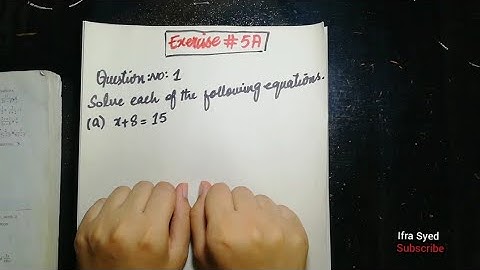 Exercise # 5A
Question :no: 1
Solve each of the following equations.
(a) x+8 = 15
Ifra Syed
Subscribe